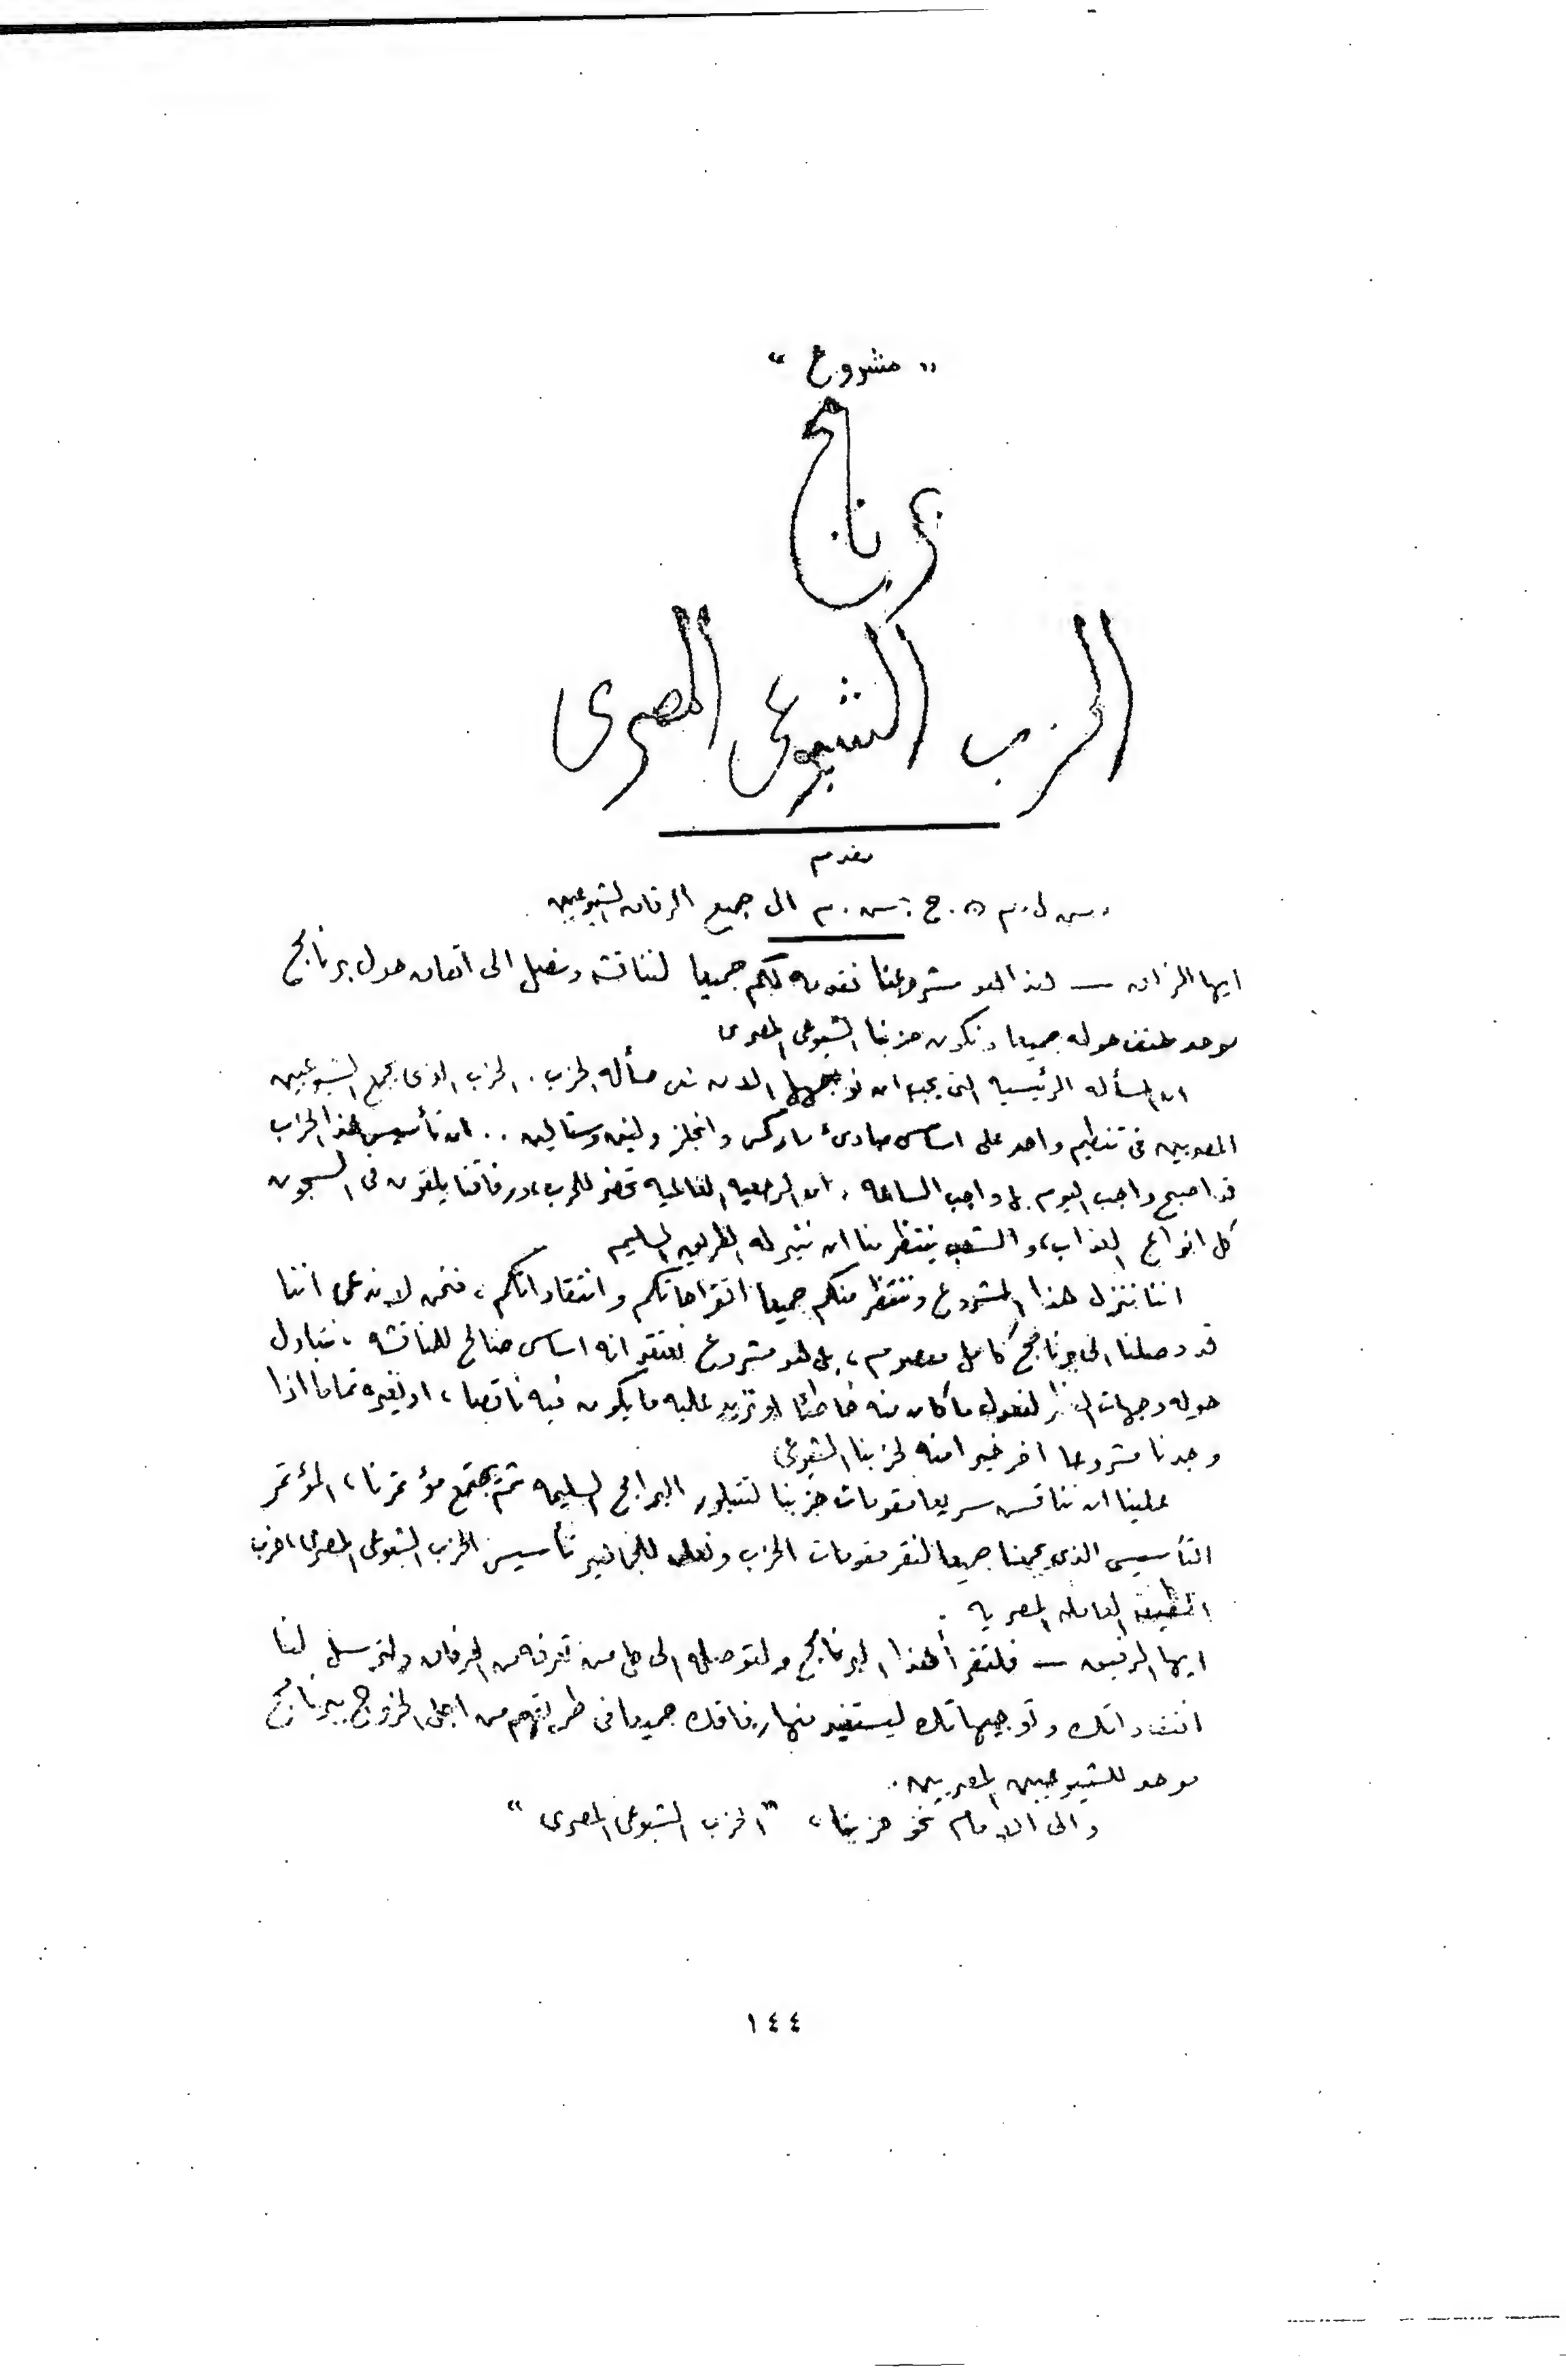 " مشروع "
برنامج
الحزب الشيوعى المصرى
مقدم
من ل. م ح. س. م الى جميع الرفاق الشيوعيين
ايها الرفاق — هذا هو مشروعنا نقدمه لكم جميعا لنناقشه ونصل الى اتفاق حول برنامج
موحد نلتف حوله جميعا ونكون حزبنا الشيوعى المصرى
ان المسأله الرئيسيه التى يجب ان نواجهها الان هى مسأله الحزب . الحزب الذى يجمع الشيوعيين
المصريين فى تنظيم واحد على اساس مبادئ ماركس وانجلز ولينين وستالين .. ان تأسيس هذا الحزب
قد اصبح واجب اليوم بل واجب الساعه . ان الرجعيه العالميه تحضر للحرب، ورفاقنا يلقون فى السجون
كل انواع العذاب، والشعب ينتظر منا ان ننير له الطريق السليم
اننا ننزل هذا المشروع وننتظر منكم جميعا اقتراحاتكم وانتقاداتكم، فنحن لا ندعى اننا
قد وصلنا الى برنامج كامل معصوم، بل هو مشروع نعتقد انه اساس صالح للمناقشه ، نتبادل
حوله وجهات النظر لنعدل ما كان منه خاطئا او نزيد عليه ما يكون فيه ناقصا، او نغيره تماما اذا
وجدنا مشروعا اخر خيرا منه لحزبنا الشيوعى
علينا ان نناقش سريعا مقومات حزبنا لتتبلور البرامج السليمه ثم يجتمع مؤتمرنا، المؤتمر
التأسيسى الذى يجمعنا جميعا لنقر مقومات الحزب ونعلن للجماهير تأسيس الحزب الشيوعى المصرى، حزب
الطبقه العامله المصريه .
ايها الرفيق — فلتقرأ هذا البرنامج ولتوصله الى كل من تعرفه من الرفاق ولترسل لنا
انتقاداتك وتوجيهاتك ليستفيد منها رفاقك جميعا فى طريقهم من اجل الخروج ببرنامج
موحد للشيوعيين المصريين .
والى الامام نحو حزبنا، " الحزب الشيوعى المصرى "
١٤٤